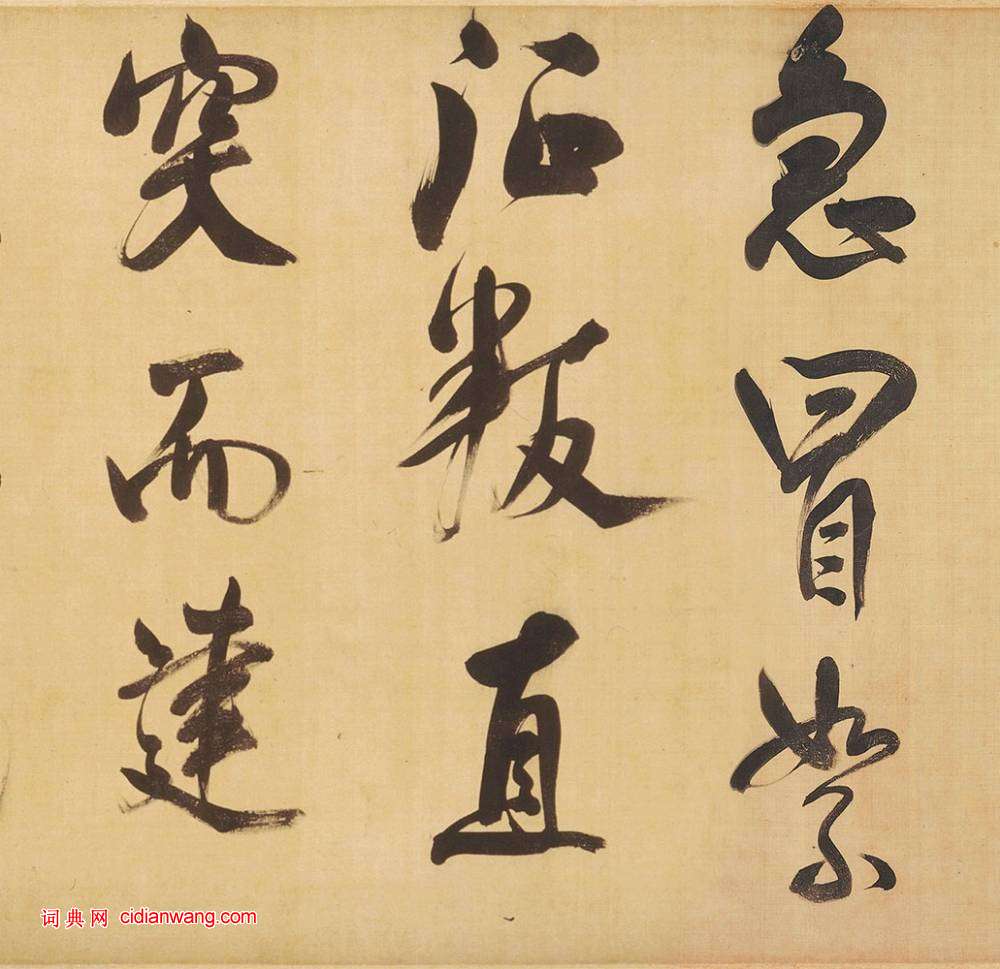 急冒絮
直
突而達
词典网 cidianwang.com